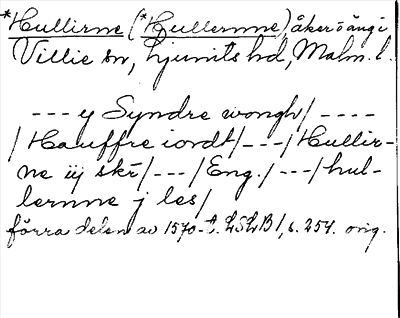 *Hullirne (*Hullernne), åker o äng i
Villie sn, Ljunits hd, Malm. l.
--- y Syndre wongh/ ----
/ Hauffre iordt/---/Hullir-
ne iij skr/---/Eng./---/hul-
lernne j les/
förra delen av 1570-t. LSLB 1, s. 254. orig.